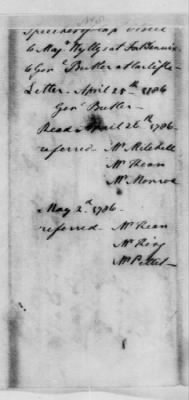 Speech
to Majr. Wyllys at
to Genl. Butler at Carlisle
Letter - April 25th 1786
Genl. Butler -
Read April 26th 1786.
referred - Mr Mitchell
Mr Kean
Mr Monroe
May 2d 1786 -
referred - Mr Kean
Mr King
Mr Pettit -